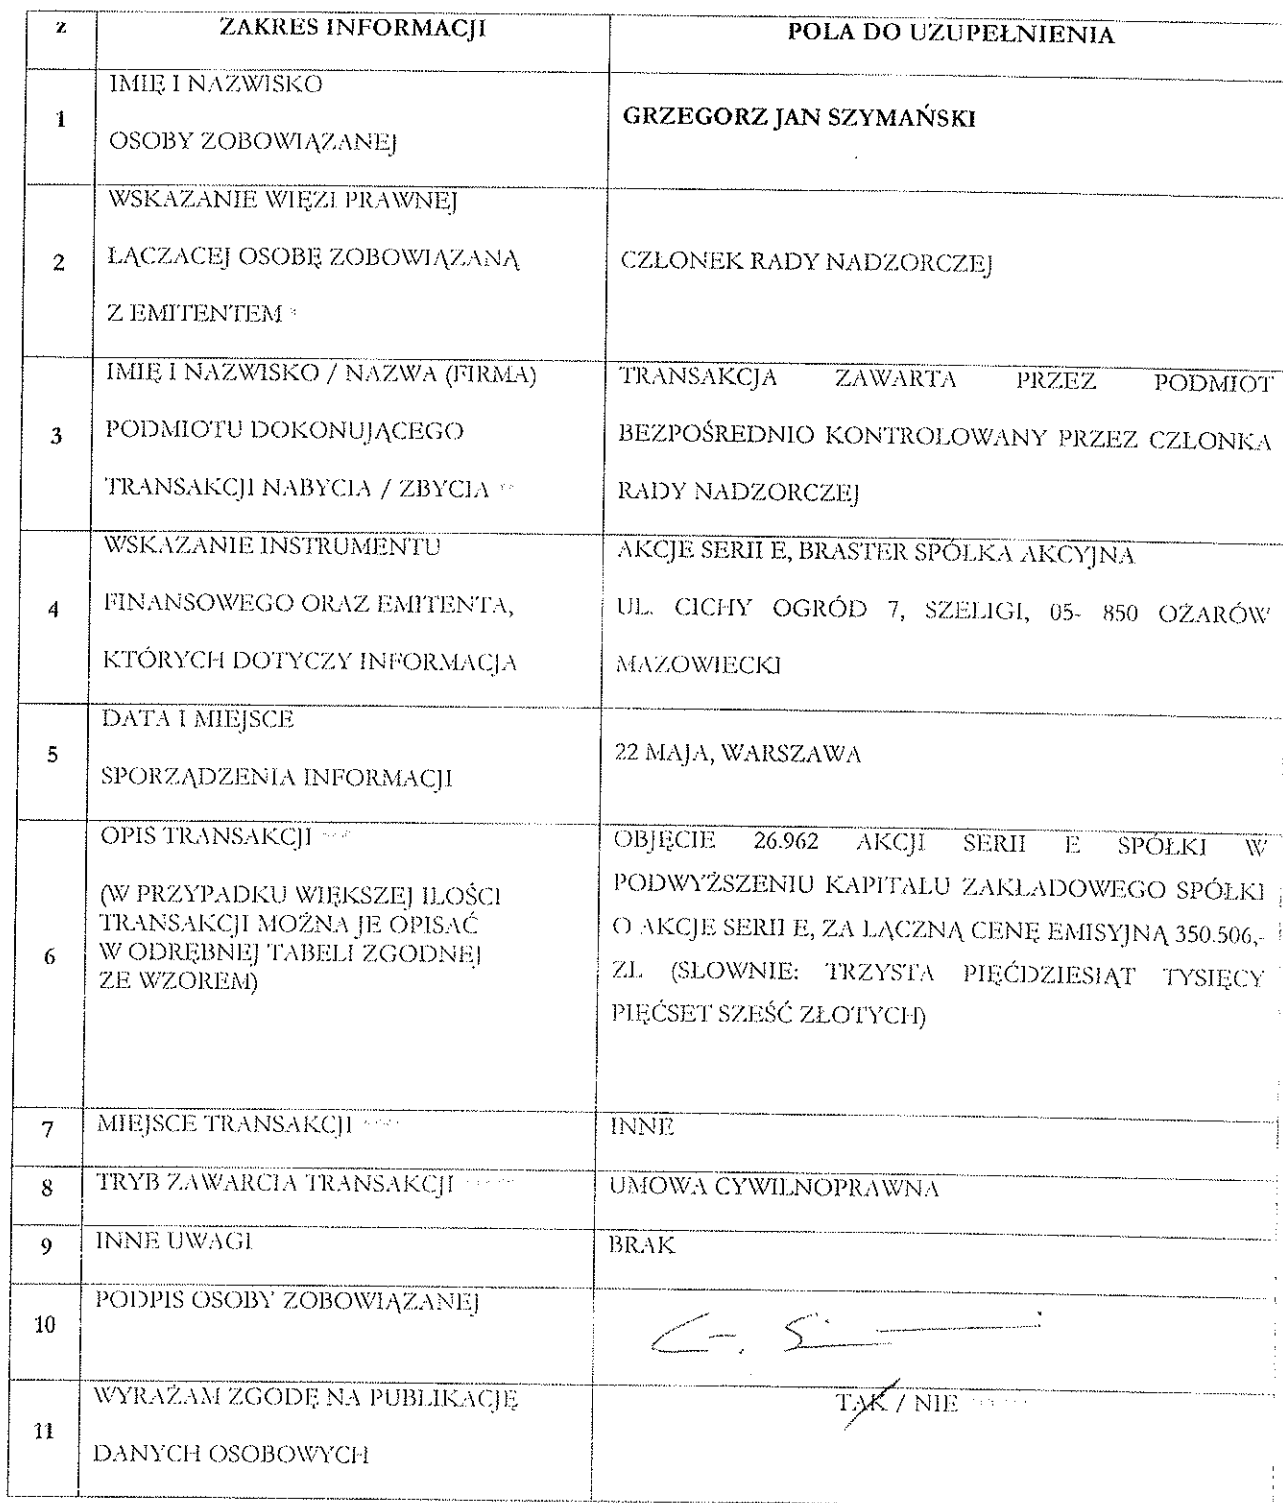 z ZAKRES INFORMACJI POLA DO UZUPEŁNIENIA
1
IMIĘ I NAZWISKO
OSOBY ZOBOWIĄZANEJ
GRZEGORZ JAN SZYMAŃSKI
2
WSKAZANIE WIĘZI PRAWNEJ
ŁĄCZACEJ OSOBĘ ZOBOWIĄZANĄ
Z EMITENTEM *
CZŁONEK RADY NADZORCZEJ
3
IMIĘ I NAZWISKO / NAZWA (FIRMA)
PODMIOTU DOKONUJĄCEGO
TRANSAKCJI NABYCIA / ZBYCIA **
TRANSAKCJA ZAWARTA PRZEZ PODMIOT
BEZPOŚREDNIO KONTROLOWANY PRZEZ CZŁONKA
RADY NADZORCZEJ
4
WSKAZANIE INSTRUMENTU
FINANSOWEGO ORAZ EMITENTA,
KTÓRYCH DOTYCZY INFORMACJA
AKCJE SERII E, BRASTER SPÓŁKA AKCYJNA
UL. CICHY OGRÓD 7, SZELIGI, 05- 850 OŻARÓW
MAZOWIECKI
5
DATA I MIEJSCE
SPORZĄDZENIA INFORMACJI
22 MAJA, WARSZAWA
6
OPIS TRANSAKCJI ***
(W PRZYPADKU WIĘKSZEJ ILOŚCI
TRANSAKCJI MOŻNA JE OPISAĆ
W ODRĘBNEJ TABELI ZGODNEJ
ZE WZOREM)
OBJĘCIE 26.962 AKCJI SERII E SPÓŁKI W
PODWYŻSZENIU KAPITAŁU ZAKŁADOWEGO SPÓŁKI
O AKCJE SERII E, ZA ŁĄCZNĄ CENĘ EMISYJNĄ 350.506,-
ZŁ (SŁOWNIE: TRZYSTA PIĘĆDZIESIĄT TYSIĘCY
PIĘĆSET SZEŚĆ ZŁOTYCH)
7 MIEJSCE TRANSAKCJI **** INNE
8 TRYB ZAWARCIA TRANSAKCJI ***** UMOWA CYWILNOPRAWNA
9 INNE UWAGI BRAK
10 PODPIS OSOBY ZOBOWIĄZANEJ
11
WYRAŻAM ZGODĘ NA PUBLIKACJĘ
DANYCH OSOBOWYCH
TAK / NIE